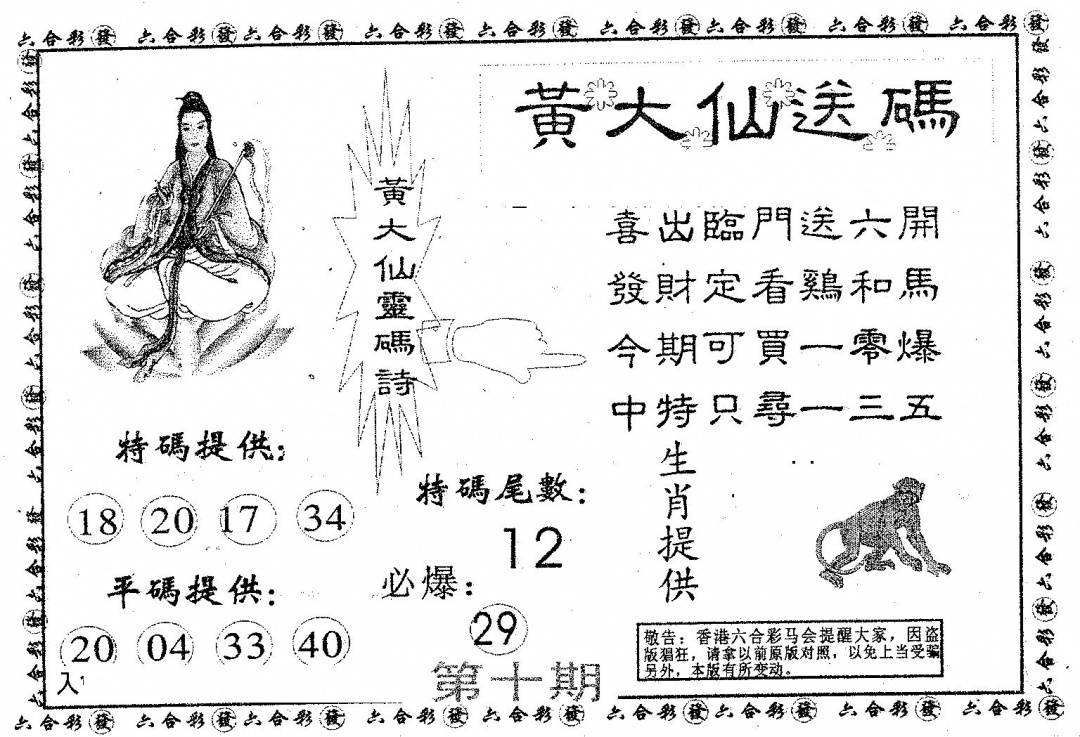 六合彩發 六合彩發六合彩發 六合彩發 六合彩發 六合彩發六合彩發 六合彩發 六合彩發
黃大仙送碼
黃大仙靈碼詩
喜出臨門送六開
發財定看鷄和馬
今期可買一零爆
中特只尋一三五
特碼提供:
18 20 17 34
特碼尾數:
12
生肖提供
平碼提供:
20 04 33 40
必爆:
29
敬告:香港六合彩马会提醒大家,因盗
版猖狂,请拿以前原版对照,以免上当受骗
另外,本版有所变动。
入1
第十期
六合彩發 六合彩發六合彩發 六合彩發 六合彩發 六合彩發六合彩發 六合彩發 六合彩發